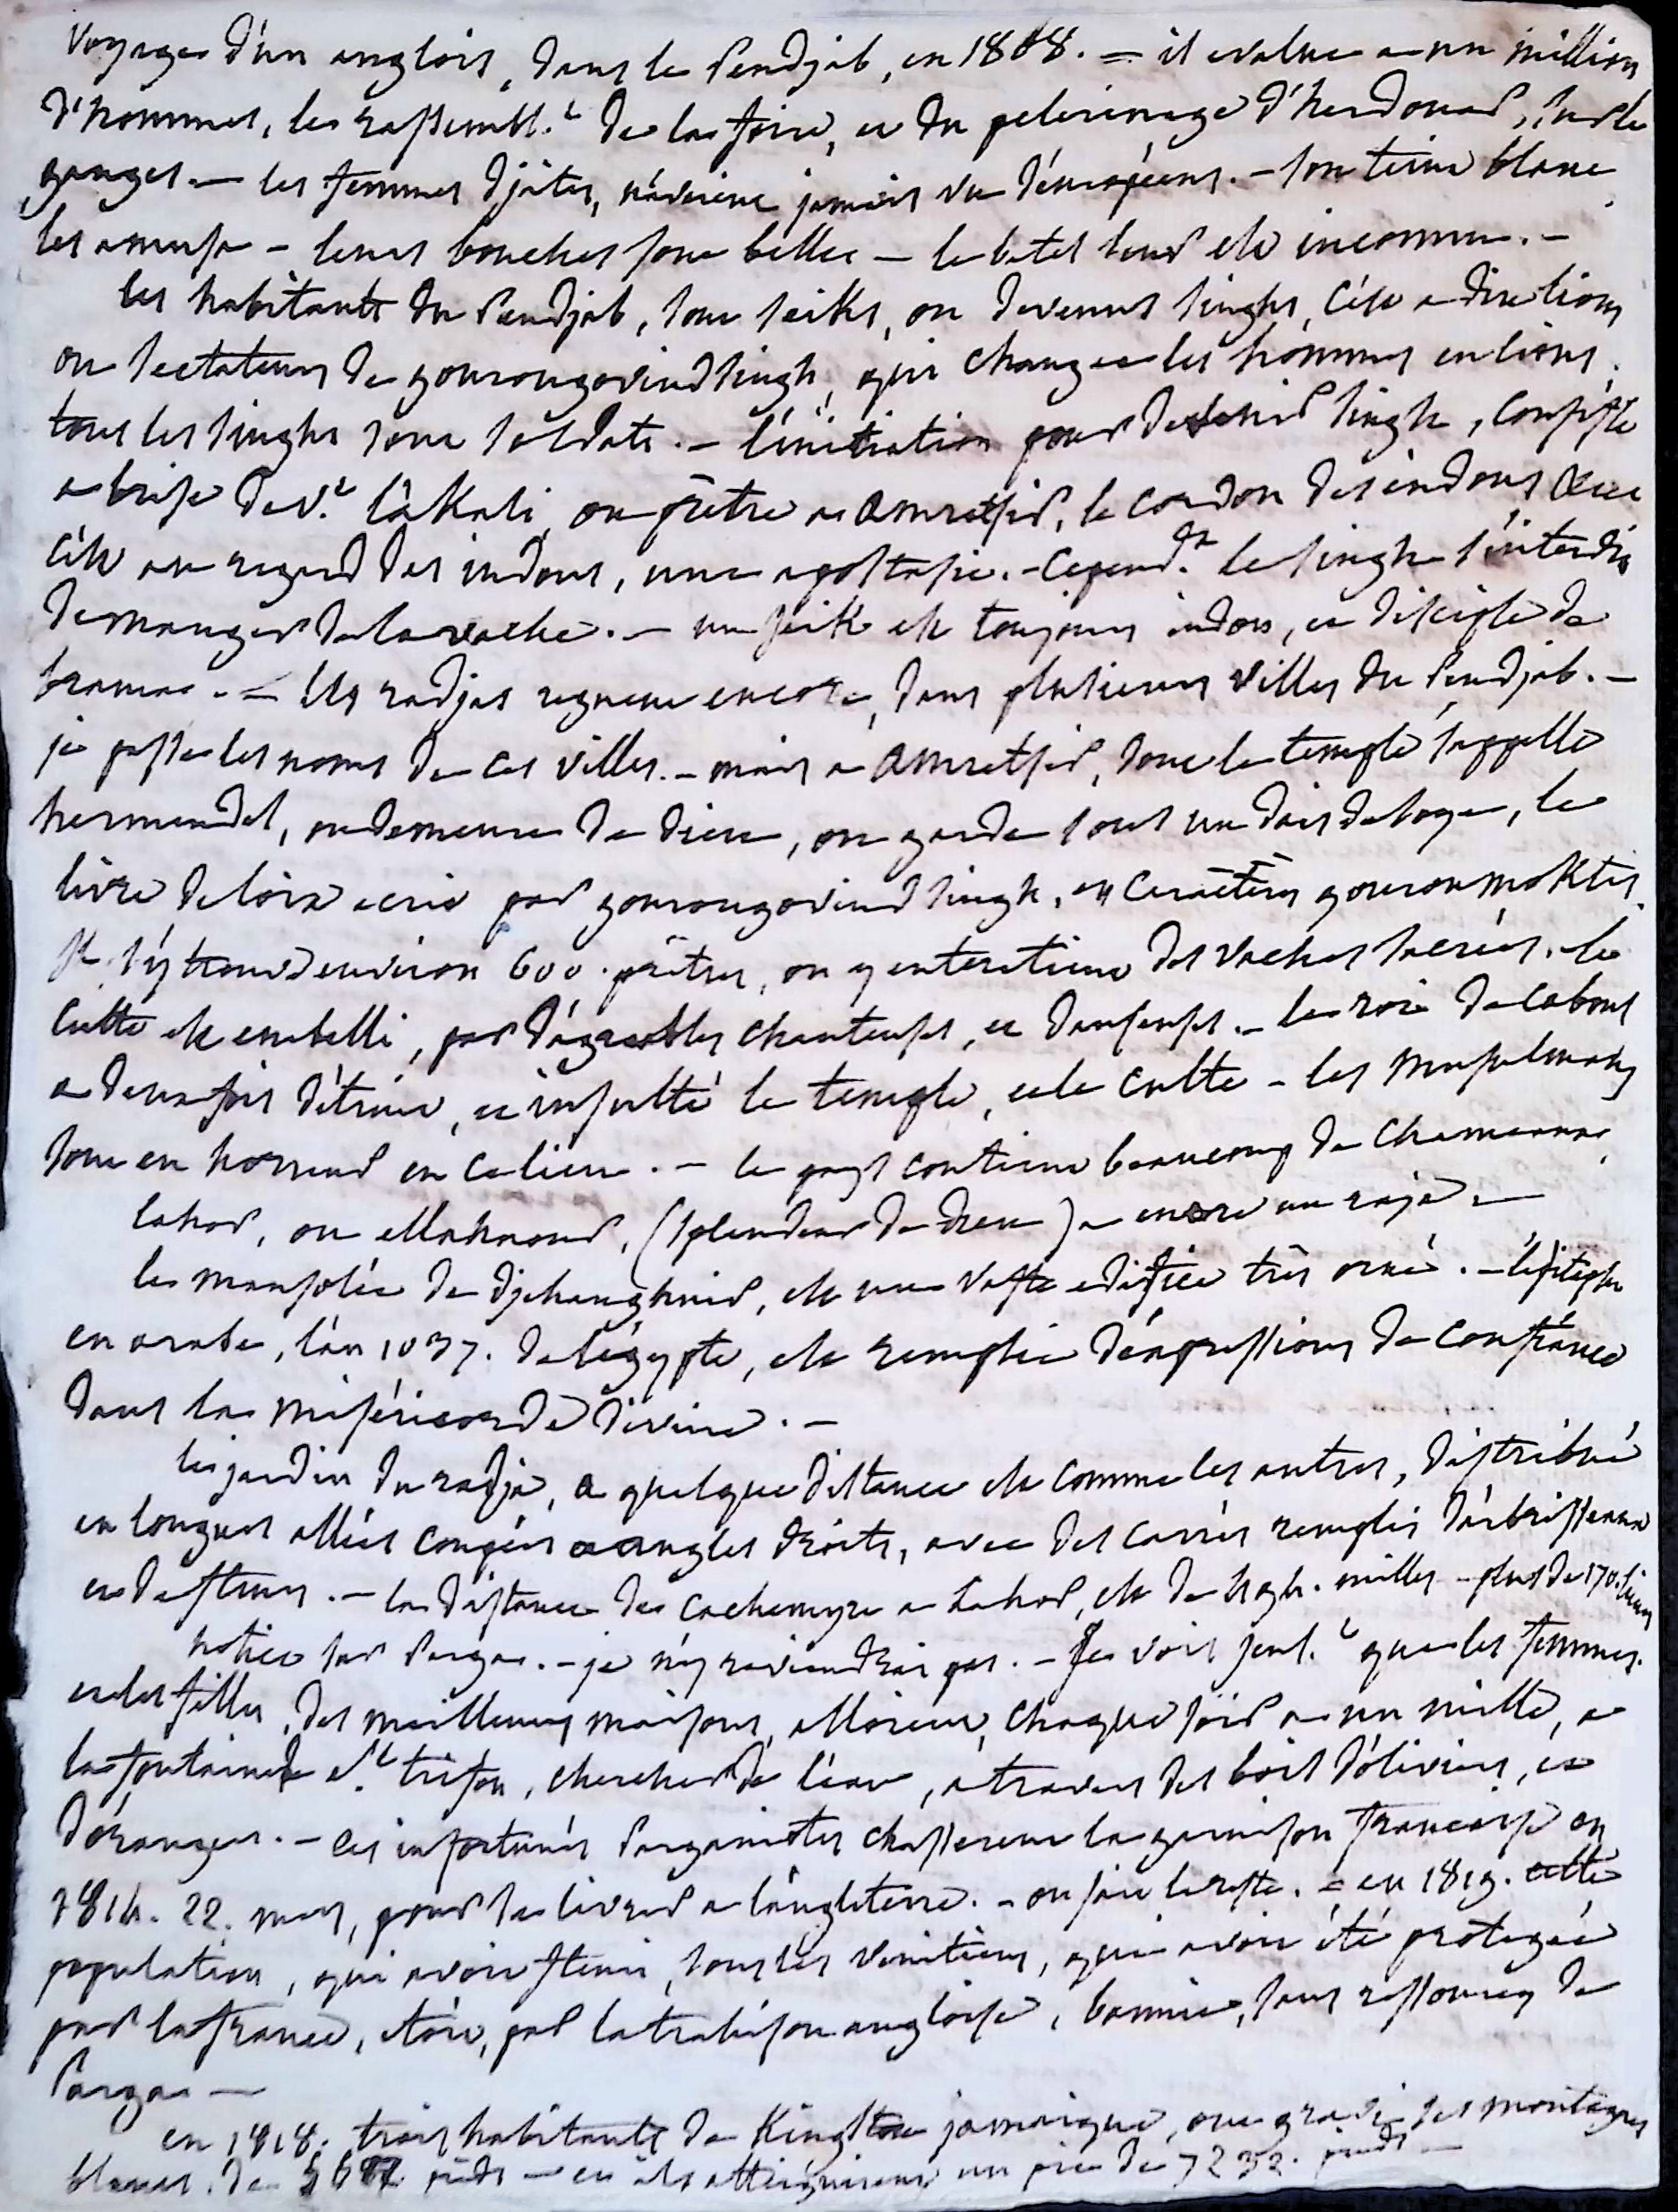 Voyages d'un anglois, dans le Pendjab, en 1808. = il evalue a un million
d'hommes, les rassembl.t de la foire, et du pelerinage d'herdouar, sur le
ganges. — les femmes djâtes, n'avoient jamais vu d'européens. — son teint blanc
les amusa — leurs bouches sont belles — le betel leur est inconnu. —
les habitants du Pendjab, sont seiks, ou devenus singhs, c'est a dire lions
ou sectateurs de gourougovindsingh, qui changea les hommes en lions.
tous les singhs sont soldats. — l'initiation pour devenir singh, consiste
a briser dev.t l'akali, ou prêtre a Amretsir, le cordon des indous
c'est au regard des indous, une apostasie. — cepend.t le singh s'interdit
de manger de la vache. — un seik est toujours indou, et disciple de
brama. — les radjas regnent encore, dans plusieurs villes du Pendjab. —
je passe les noms de ces villes. — mais a Amretsir, dont le temple s'appelle
hermendel, ou demeure de dieu, on garde sous un dais de soye, le
livre de loix ecrit par gourougovind singh, en caractères gouroumoktis.
il s'y trouve environ 600. prêtres, on y entretient des vaches sacrées. le
culte est embelli, par d'agreables chanteuses, et danseuses. — le roi de Caboul
a deux fois détruit, et insulté le temple, et le culte — les musulmans
sont en horreur en ce lieu. — le pays contient beaucoup de chameaux.
lahor, ou ellahaour, (splendeur de dieu) a encore un raja —
le mausolée de djehanghuir, est un vaste edifice très orné. — l'epitaphe
en arabe, l'an 1037. de l'égypte, est remplie d'expressions de confiance
dans la miséricorde divine. —
les jardin du radja, a quelque distance est comme les autres, distribué
en longues allées coupées a angles droits, avec des carrés remplis d'arbrisseaux
et de fleurs. — la distance de cachemyre a Lahor, est de milles — plus de 170. lieues
notice sur Parga. — je n'y reviendrai pas. — je vois seul.t que les femmes
et les filles, des meilleures maisons, alloient, chaque soir a un mille, a
la fontaine de S.t trifon, chercher de l'eau, a travers des bois d'oliviers, et
d'orangers. — ces infortunés Parganiotes chasserent la garnison françoise en
1814. 22. mars, pour se livrer a l'angleterre. — on sait le reste. = en 1819. cette
population, qui avoit fleuri, sous les vénitiens, qui avoit été protegée
par la france, étoit, par la trahison angloise, bannie, sans ressources de
Parga —
en 1818. trois habitants de Kingston jamaique, ont gravi les montagnes
bleues. de pieds — et ils atteignirent un pic de 7232. pieds —